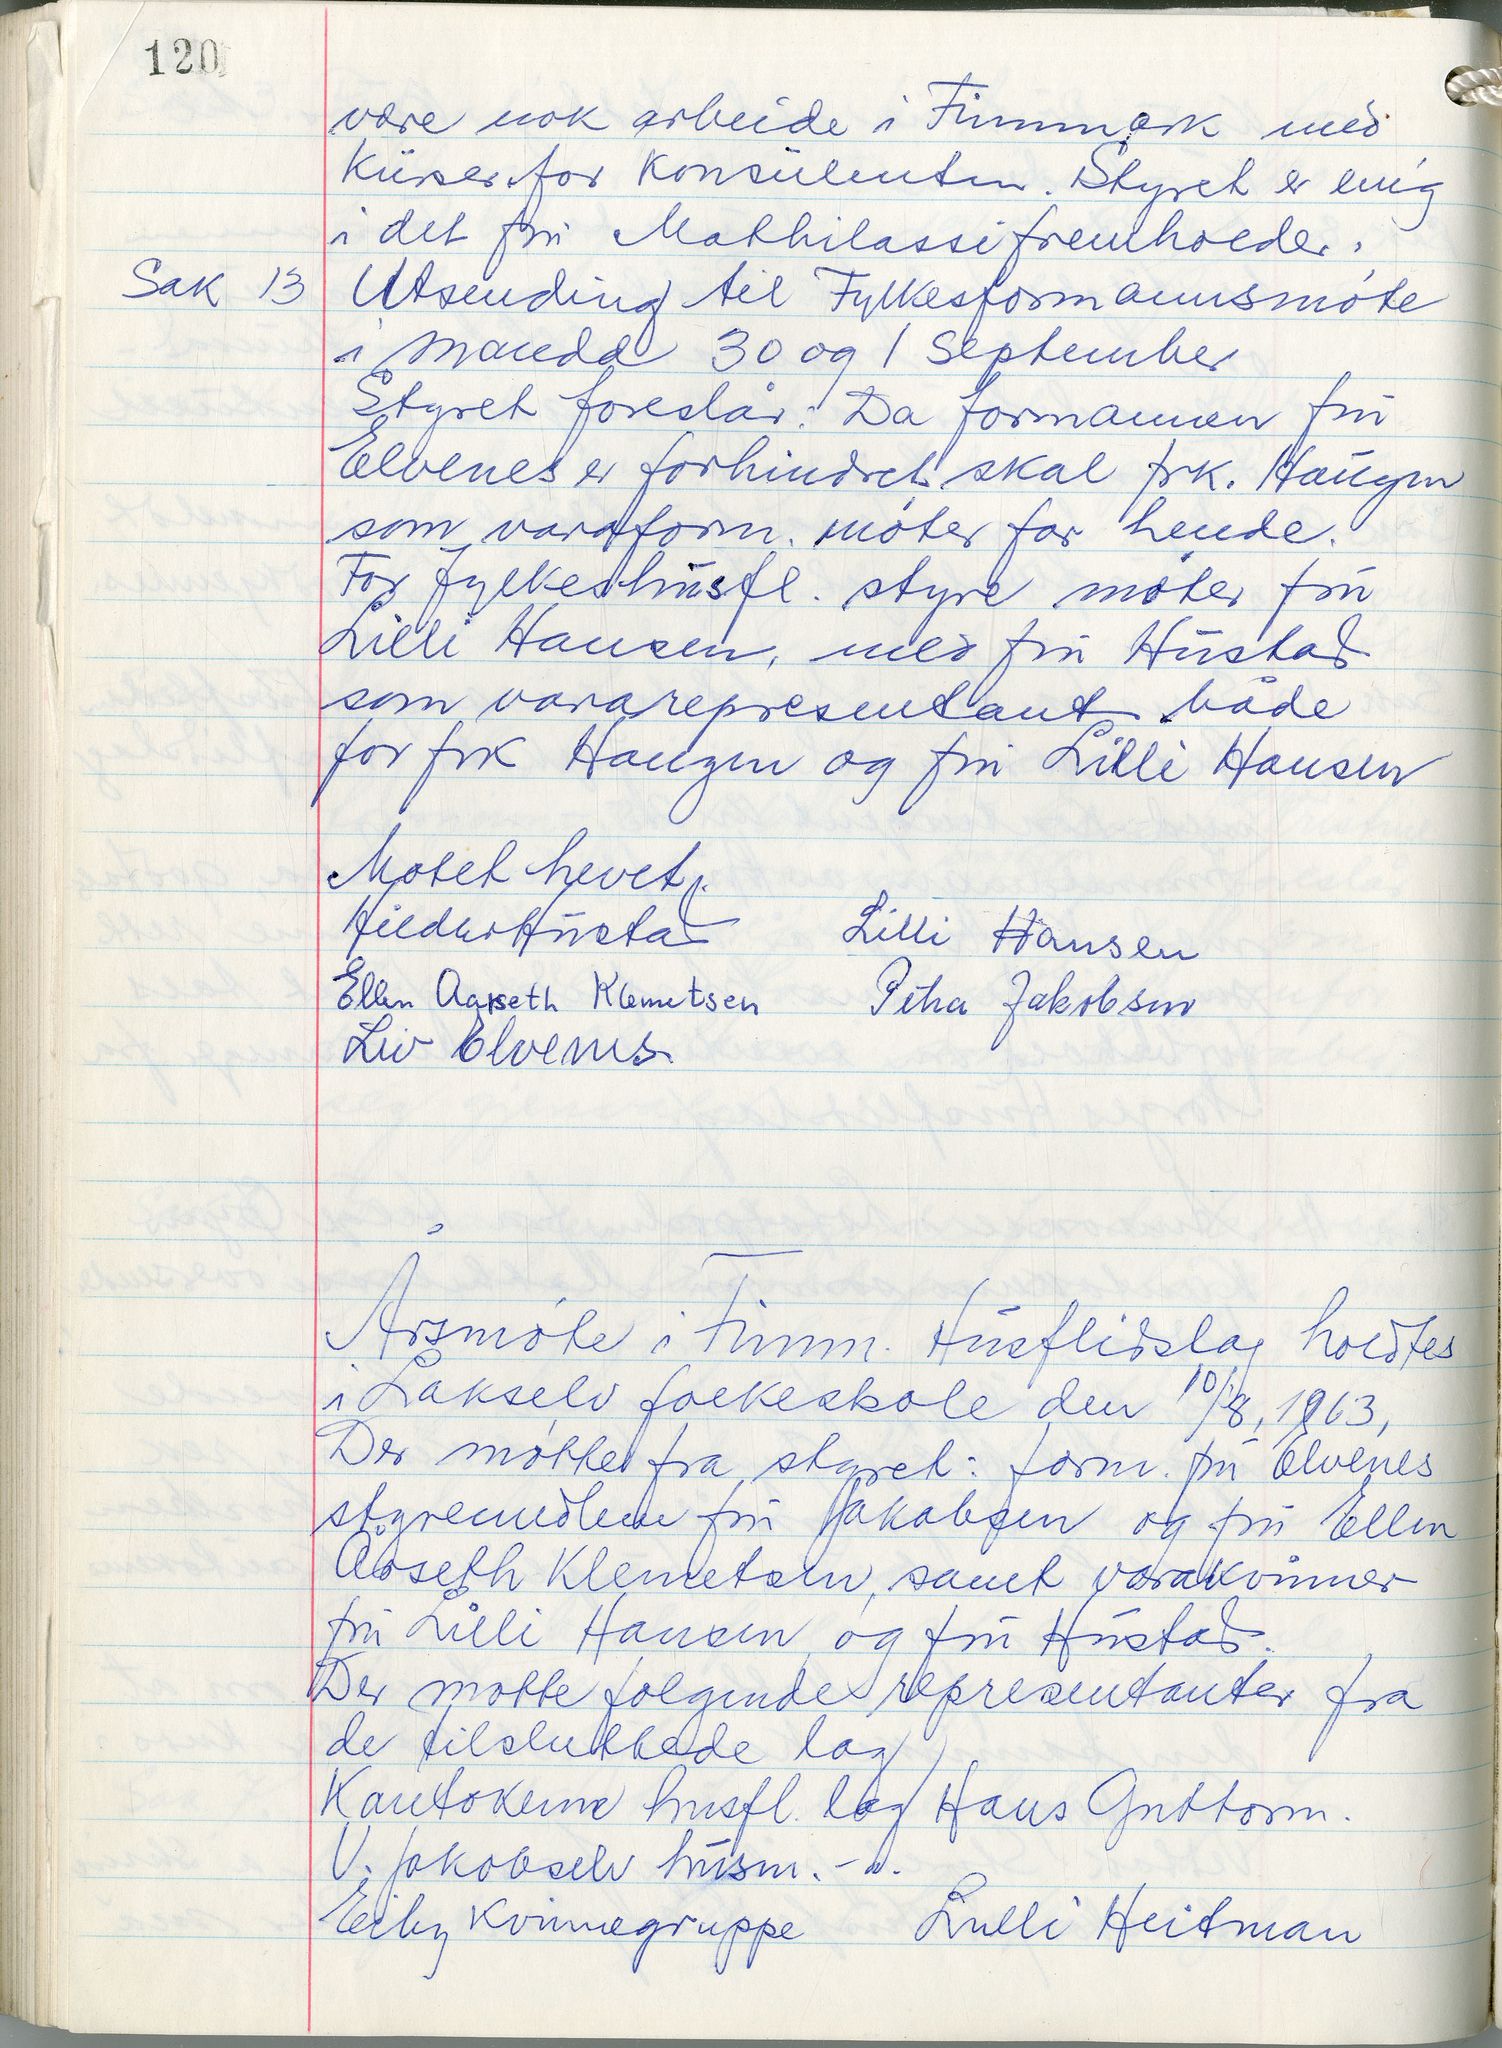 120
være nok arbeide i Finnmark med
Kurser for Konsulenten. Styret er enig
i det fru Mathilassi fremholder.
Sak 13 Utsending til Fylkesformannsmøte
i Mandal 30 og 1 September
Styret foreslår: Da formannen fru
Elvenes er forhindret skal frk. Haugen
som varaform. møter for hende.
For fylkeshusfl. styre møter fru
Lilli Hansen, med fru Hustad
som vararepresentant både
for frk Haugen og fru Lilli Hansen
Møtet hevet.
Hustad Lilli Hansen
Ellen Aarseth Klemetsen Petra Jakobsen
Liv Elvenes
Årsmøte i Finnm. Husflidslag holdtes
i Lakselv folkeskole den 10/8, 1963,
Der møtte fra styret: form. fru Elvenes
styremedlem fru Jakobsen og fru Ellen
Aarseth Klemetsen, samt varakvinner
fru Lilli Hansen og fru Hustad.
Der møtte følgende representanter fra
de tilsluttede lag
Kautokeino husfl. lag Hans Guttorm.
V. Jakobselv husm. - " -
Eiby Kvinnegruppe Lulli Heitman